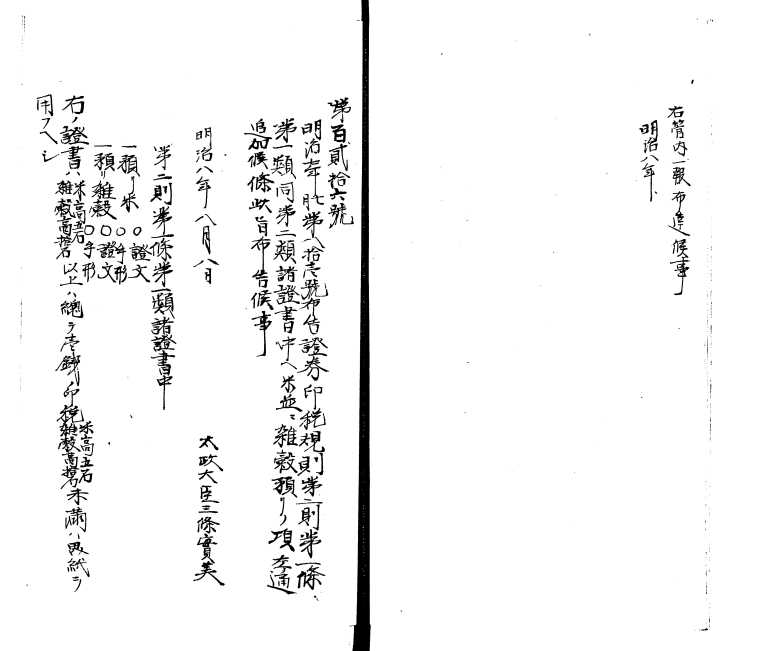 右管内一般布達候事
明治八年
第百貳拾六號
明治七年七月第八拾壱號布告證券印税規則第二則第一條
第一類同第二類諸證書中ヘ米並ニ雑穀預リノ項左ノ通
追加候條此旨布告候事
明治八年八月八日
太政大臣三條實美
第二則第一條第一類諸證書中
一預リ米 〇證文 〇手形
一預リ雑穀 〇證文 〇手形
右ノ證書ハ米高五石 雑穀高拾石以上ハ總テ壱錢ノ印税米高五石 雑穀高拾石未滿ハ界紙ヲ
用フヘシ